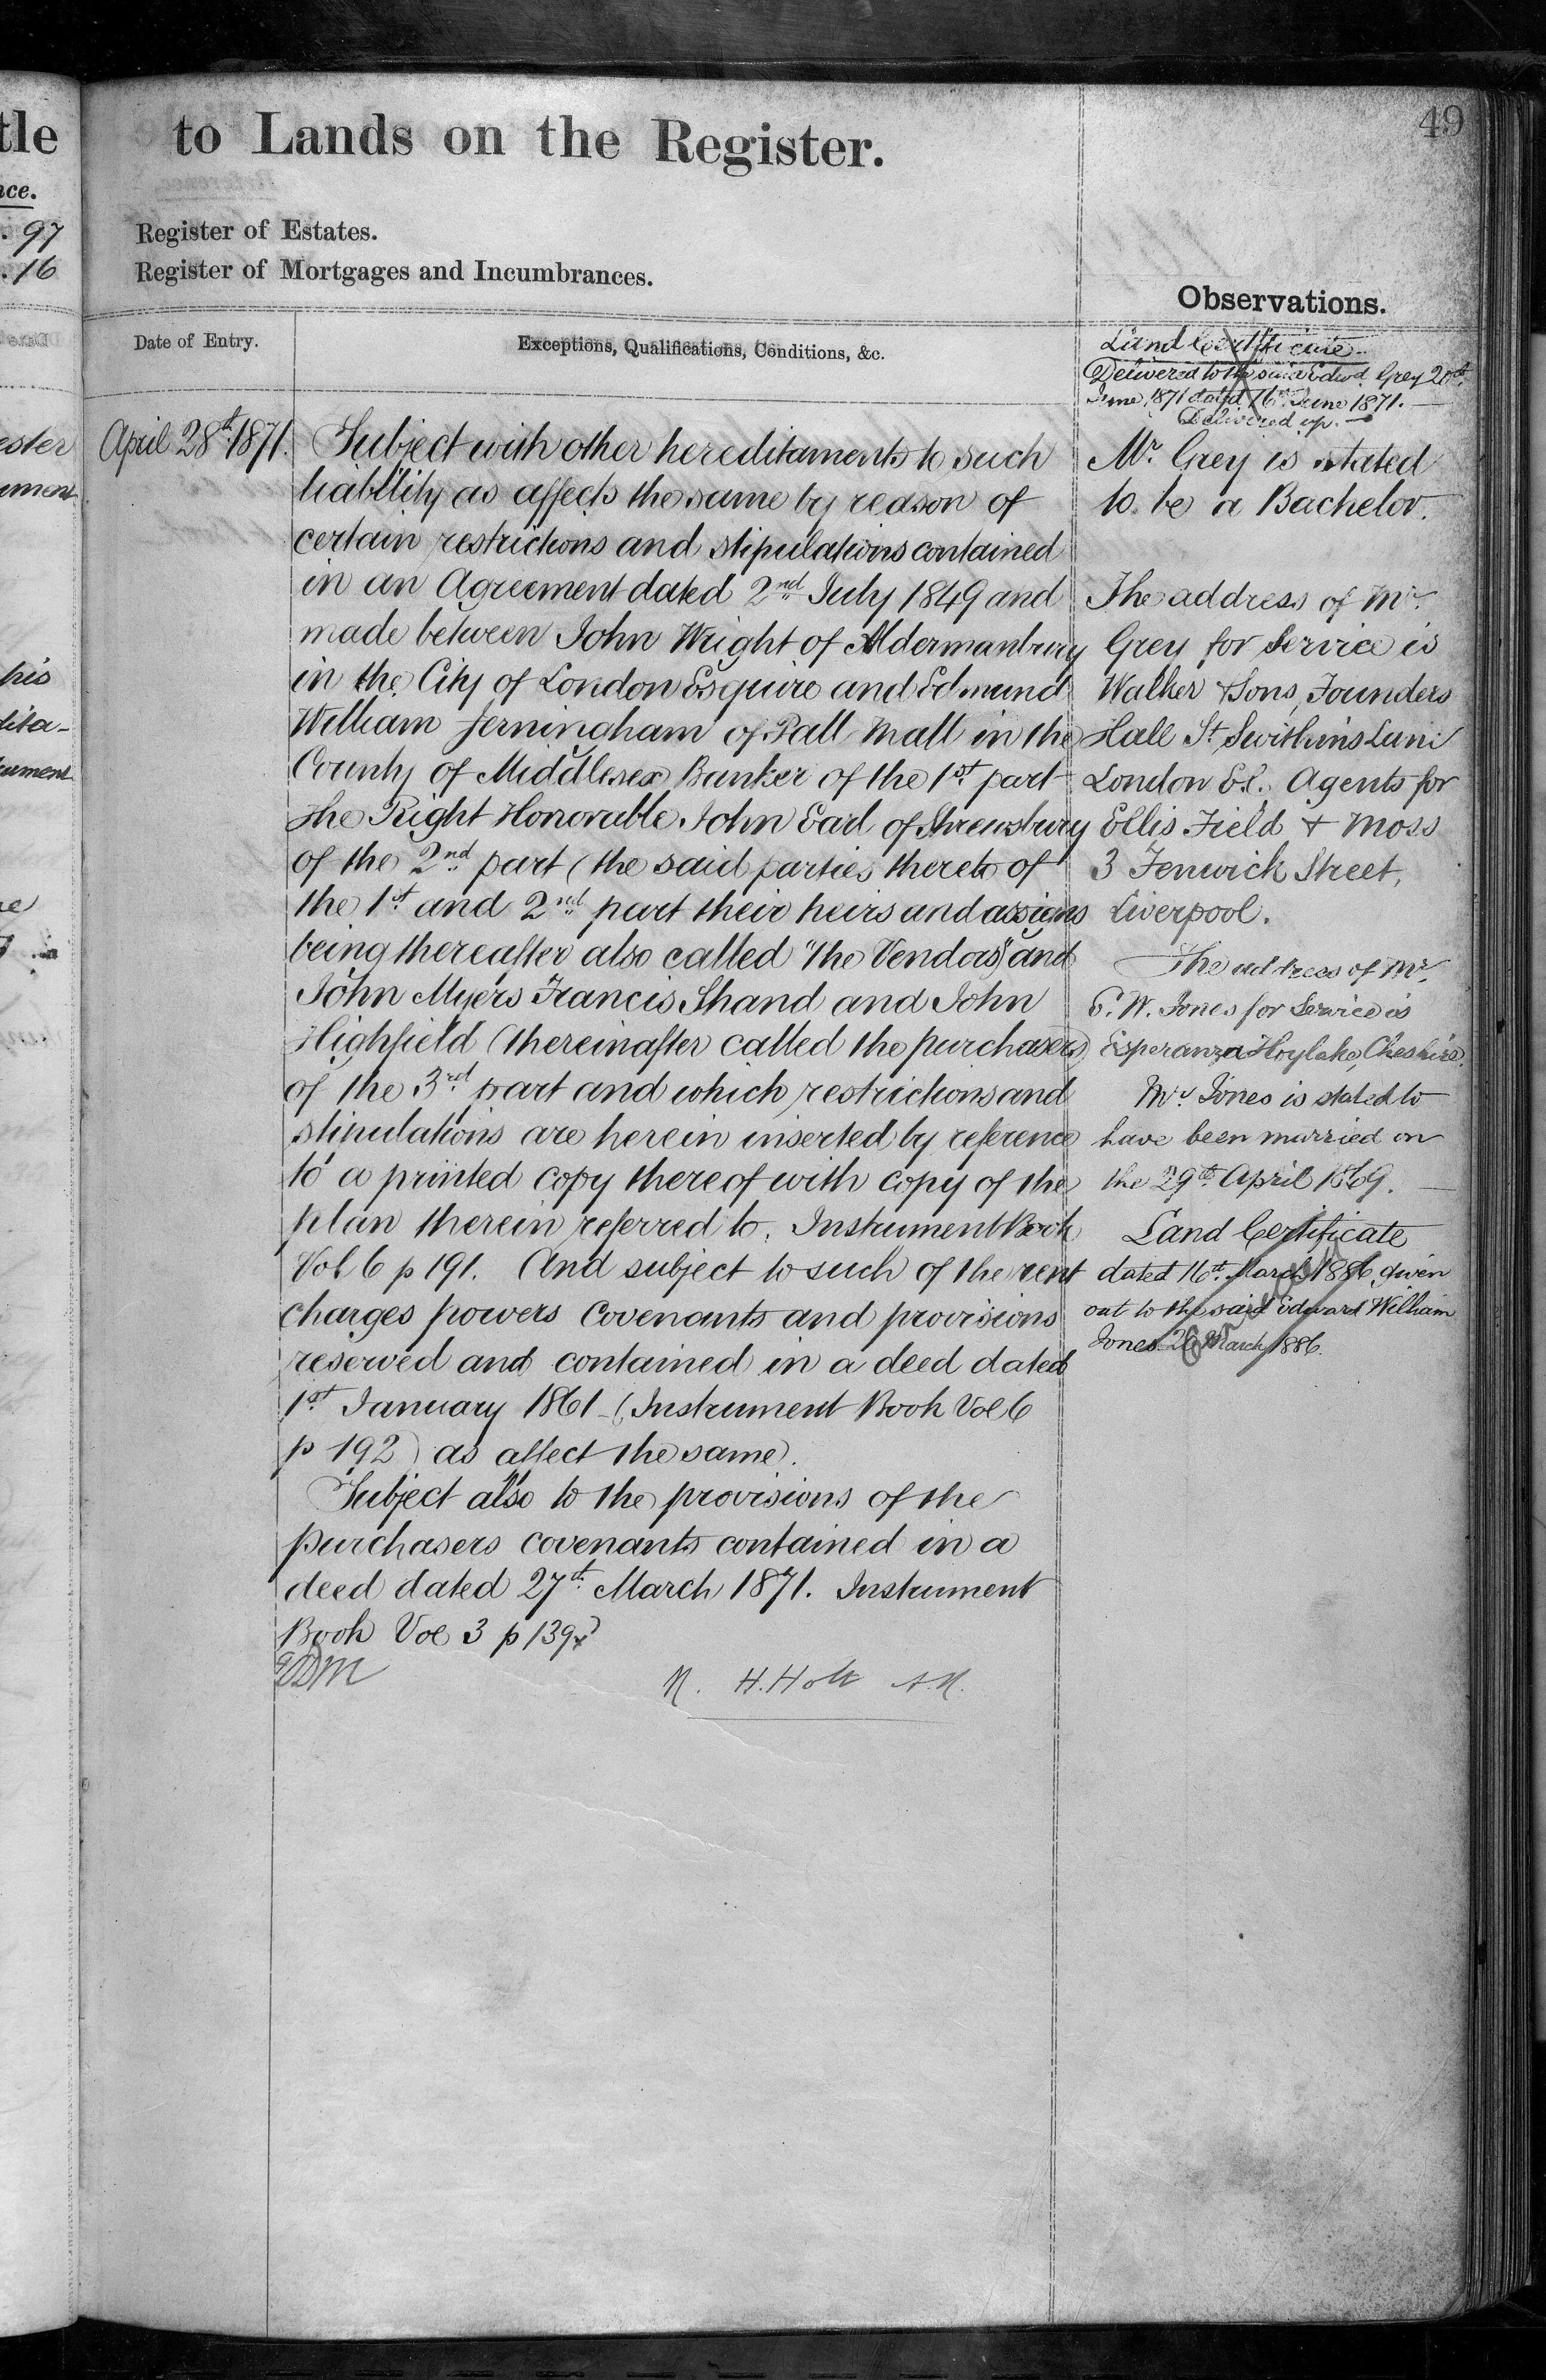 tle
nce.
. 97
. 16
ester
ument
his
dita-
ument
49
to Lands on the Register.
Register of Estates.
Register of Mortgages and Incumbrances.
Date of Entry.
Exceptions, Qualifications, Conditions, &c.
April 28th 1871.
Subject with other hereditaments to such
liability as affects the same by reason of
certain restrictions and stipulations contained
in an Agreement dated 2nd July 1849 and
made between John Wright of Aldermanbury
in the City of London Esquire and Edmund
William Jerningham of Pall Mall in the
County of Middlesex Banker of the 1st part
the Right Honorable John Earl of Shrewsbury
of the 2nd part (the said parties thereto of
the 1st and 2nd part their heirs and assigns
being thereafter also called "the Vendors) and
John Myers Francis Shand and John
Highfield (thereinafter called the purchasers)
of the 3rd part and which restrictions and
stipulations are herein inserted by reference
to a printed copy thereof with copy of the
plan therein referred to. Instrument Book
Vol 6 p 191. And subject to such of the rent
charges powers Covenants and provisions
reserved and contained in a deed dated
1st January 1861 - (Instrument Book Vol 6
p 192) as affect the same.
Subject also to the provisions of the
purchasers covenants contained in a
deed dated 27th March 1871. Instrument
Book Vol 3 p 139
H. Holt A.R.
Observations.
Land Certificate
Delivered to the said Edwd. Grey 20th
June 1871 dated 16th June 1871. —
Delivered up. —
Mr. Grey is stated
to be a Bachelor.
The address of Mr.
Grey for Service is
Walker & Sons, Founders
Hall St. Swithins Lane
London E.C. Agents for
Ellis Field & Moss
3 Fenwick Street,
Liverpool.
The address of Mr.
E. W. Jones for Service is
Esperanza Hoylake, Cheshire.
Mr. Jones is stated to
have been married on
the 29th April 1869. —
Land Certificate
dated 16th March 1886, given
out to the said Edward William
Jones 26 March 1886.
Cancelled